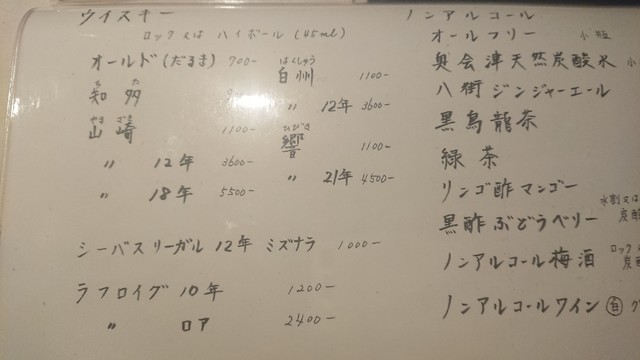 ウイスキー
ロック又は ハイボール (45ml)
オールド(だるま) 700-
ちた
知多
やまざき
山崎 1100-
〃 12年 3600-
〃 18年 5500-
はくしゅう
白州 1100-
〃 12年 3600-
ひびき
響 1100-
〃 21年 4500-
シーバスリーガル 12年 ミズナラ 1000-
ラフロイグ 10年 1200-
〃 ロア 2400-
ノンアルコール
オールフリー 小瓶
奥会津天然炭酸水 小
八街ジンジャーエール
黒烏龍茶
緑茶
リンゴ酢マンゴー
水割又は
黒酢ぶどうベリー 炭酸
ロック
ノンアルコール梅酒 炭酸
ノンアルコールワイン 白 グ